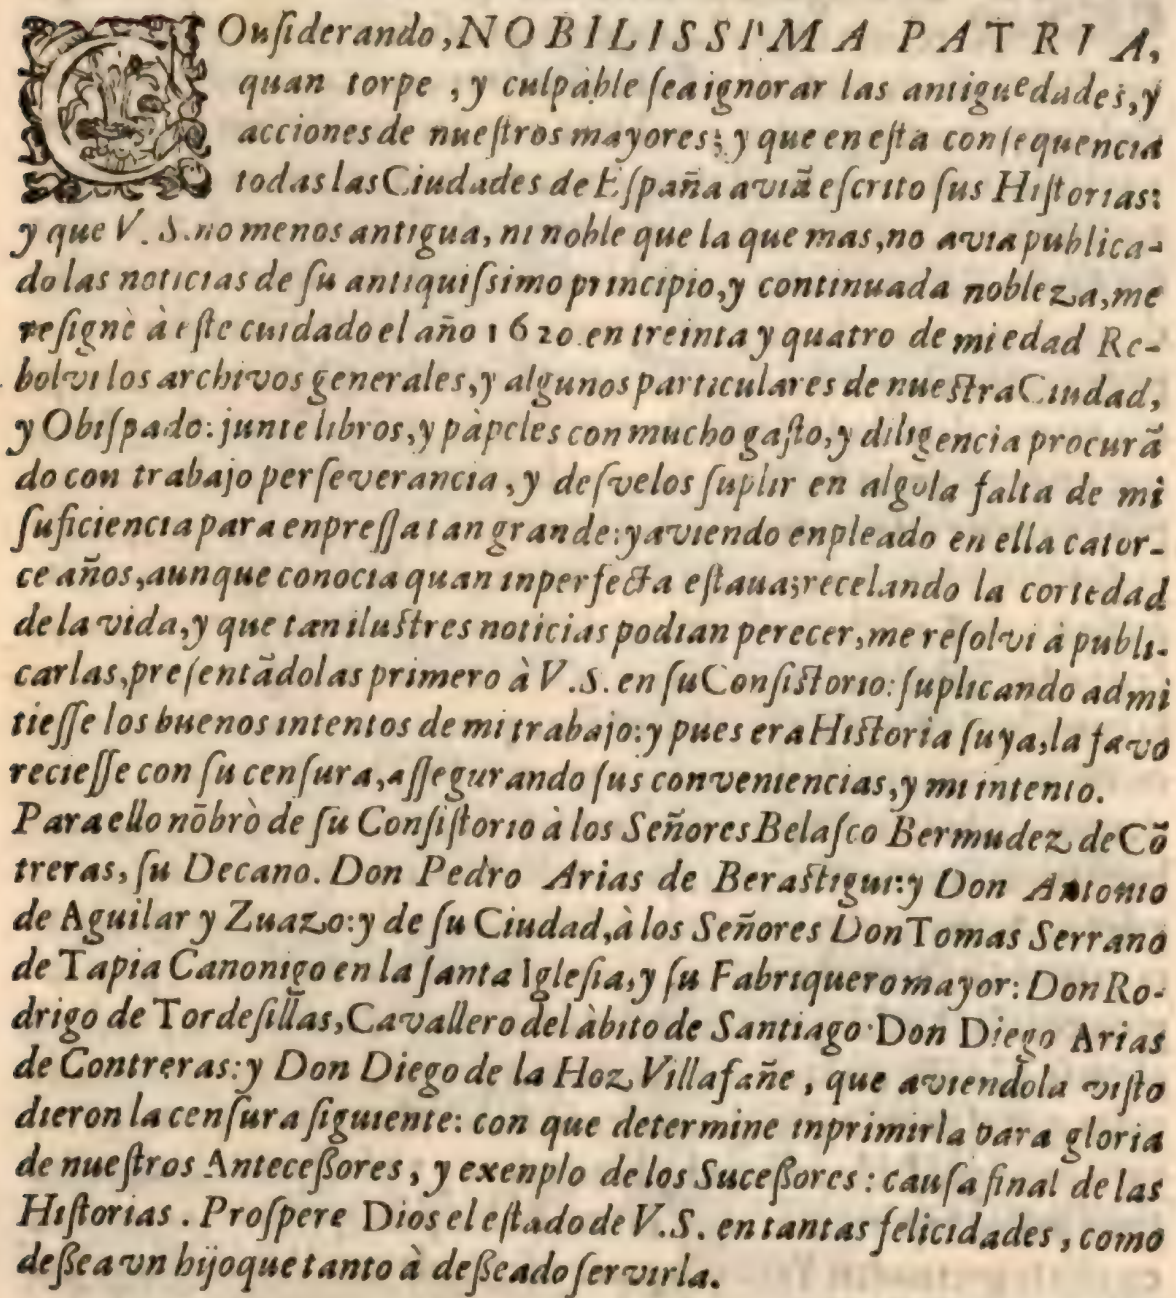 COnſiderando, NOBILISSIMA PATRIA,
quan torpe, y culpable ſea ignorar las antiguedades, y
acciones de nueſtros mayores; y que en eſta conſequencia
todas las Ciudades de Eſpaña aviã eſcrito ſus Hiſtorias:
y que V. S. no menos antigua, ni noble que la que mas, no avia publica-
do las noticias de ſu antiquiſsimo principio, y continuada nobleza, me
reſignè à eſte cuidado el año 1620. en treinta y quatro de mi edad Re-
bolvi los archivos generales, y algunos particulares de nueſtra Ciudad,
y Obiſpado: junte libros, y pàpeles con mucho gaſto, y diligencia procurã
do con trabajo perſeverancia, y deſvelos ſuplir en algo la falta de mi
ſuficiencia para enpreſſa tan grande: y aviendo enpleado en ella cator-
ce años, aunque conocia quan inperfecta eſtaua; recelando la cortedad
de la vida, y que tan iluſtres noticias podian perecer, me reſolvi à publi-
carlas, preſentãdolas primero à V. S. en ſu Conſiſtorio: ſuplicando admi
tieſſe los buenos intentos de mi trabajo: y pues era Hiſtoria ſuya, la favo
recieſſe con ſu cenſura, aſſegurando ſus conveniencias, y mi intento.
Para ello nõbrò de ſu Conſiſtorio à los Señores Belaſco Bermudez de Cõ
treras, ſu Decano. Don Pedro Arias de Beraſtigui: y Don Antonio
de Aguilar y Zuazo: y de ſu Ciudad, à los Señores Don Tomas Serrano
de Tapia Canonigo en la ſanta Igleſia, y ſu Fabriquero mayor: Don Ro-
drigo de Tordeſillas, Cavallero del àbito de Santiago. Don Diego Arias
de Contreras: y Don Diego de la Hoz Villafañe, que aviendola viſto
dieron la cenſura ſiguiente: con que determine inprimirla para gloria
de nueſtros Anteceſſores, y exenplo de los Suceſſores: cauſa final de las
Hiſtorias. Proſpere Dios el eſtado de V. S. en tantas felicidades, como
deſſea vn hijo que tanto à deſſeado ſervirla.